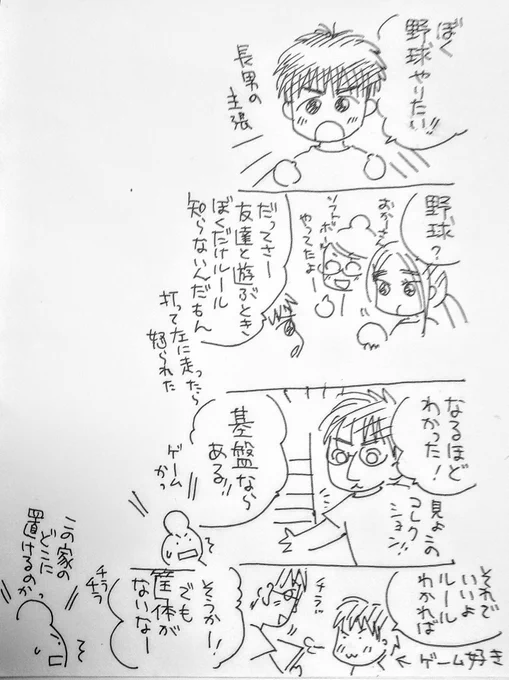 ぼく
野球やりたい!!
長男の
主張
野球?
おかーさん
ソフトボール
やってたよー
だってさー
友達と遊ぶとき
ぼくだけルール
知らないんだもん
打って左に走ったら
怒られた
なるほど
わかった!
見よこの
コレク
ション!!
基盤なら
ある!!
ゲーム
かっ
それで
いいよ
ルール
わかれば
ゲーム好き
チラッ
そうかー!
でも
筐体が
ないなー
チラ
チラ
この家の
どこに
置けるのかっ